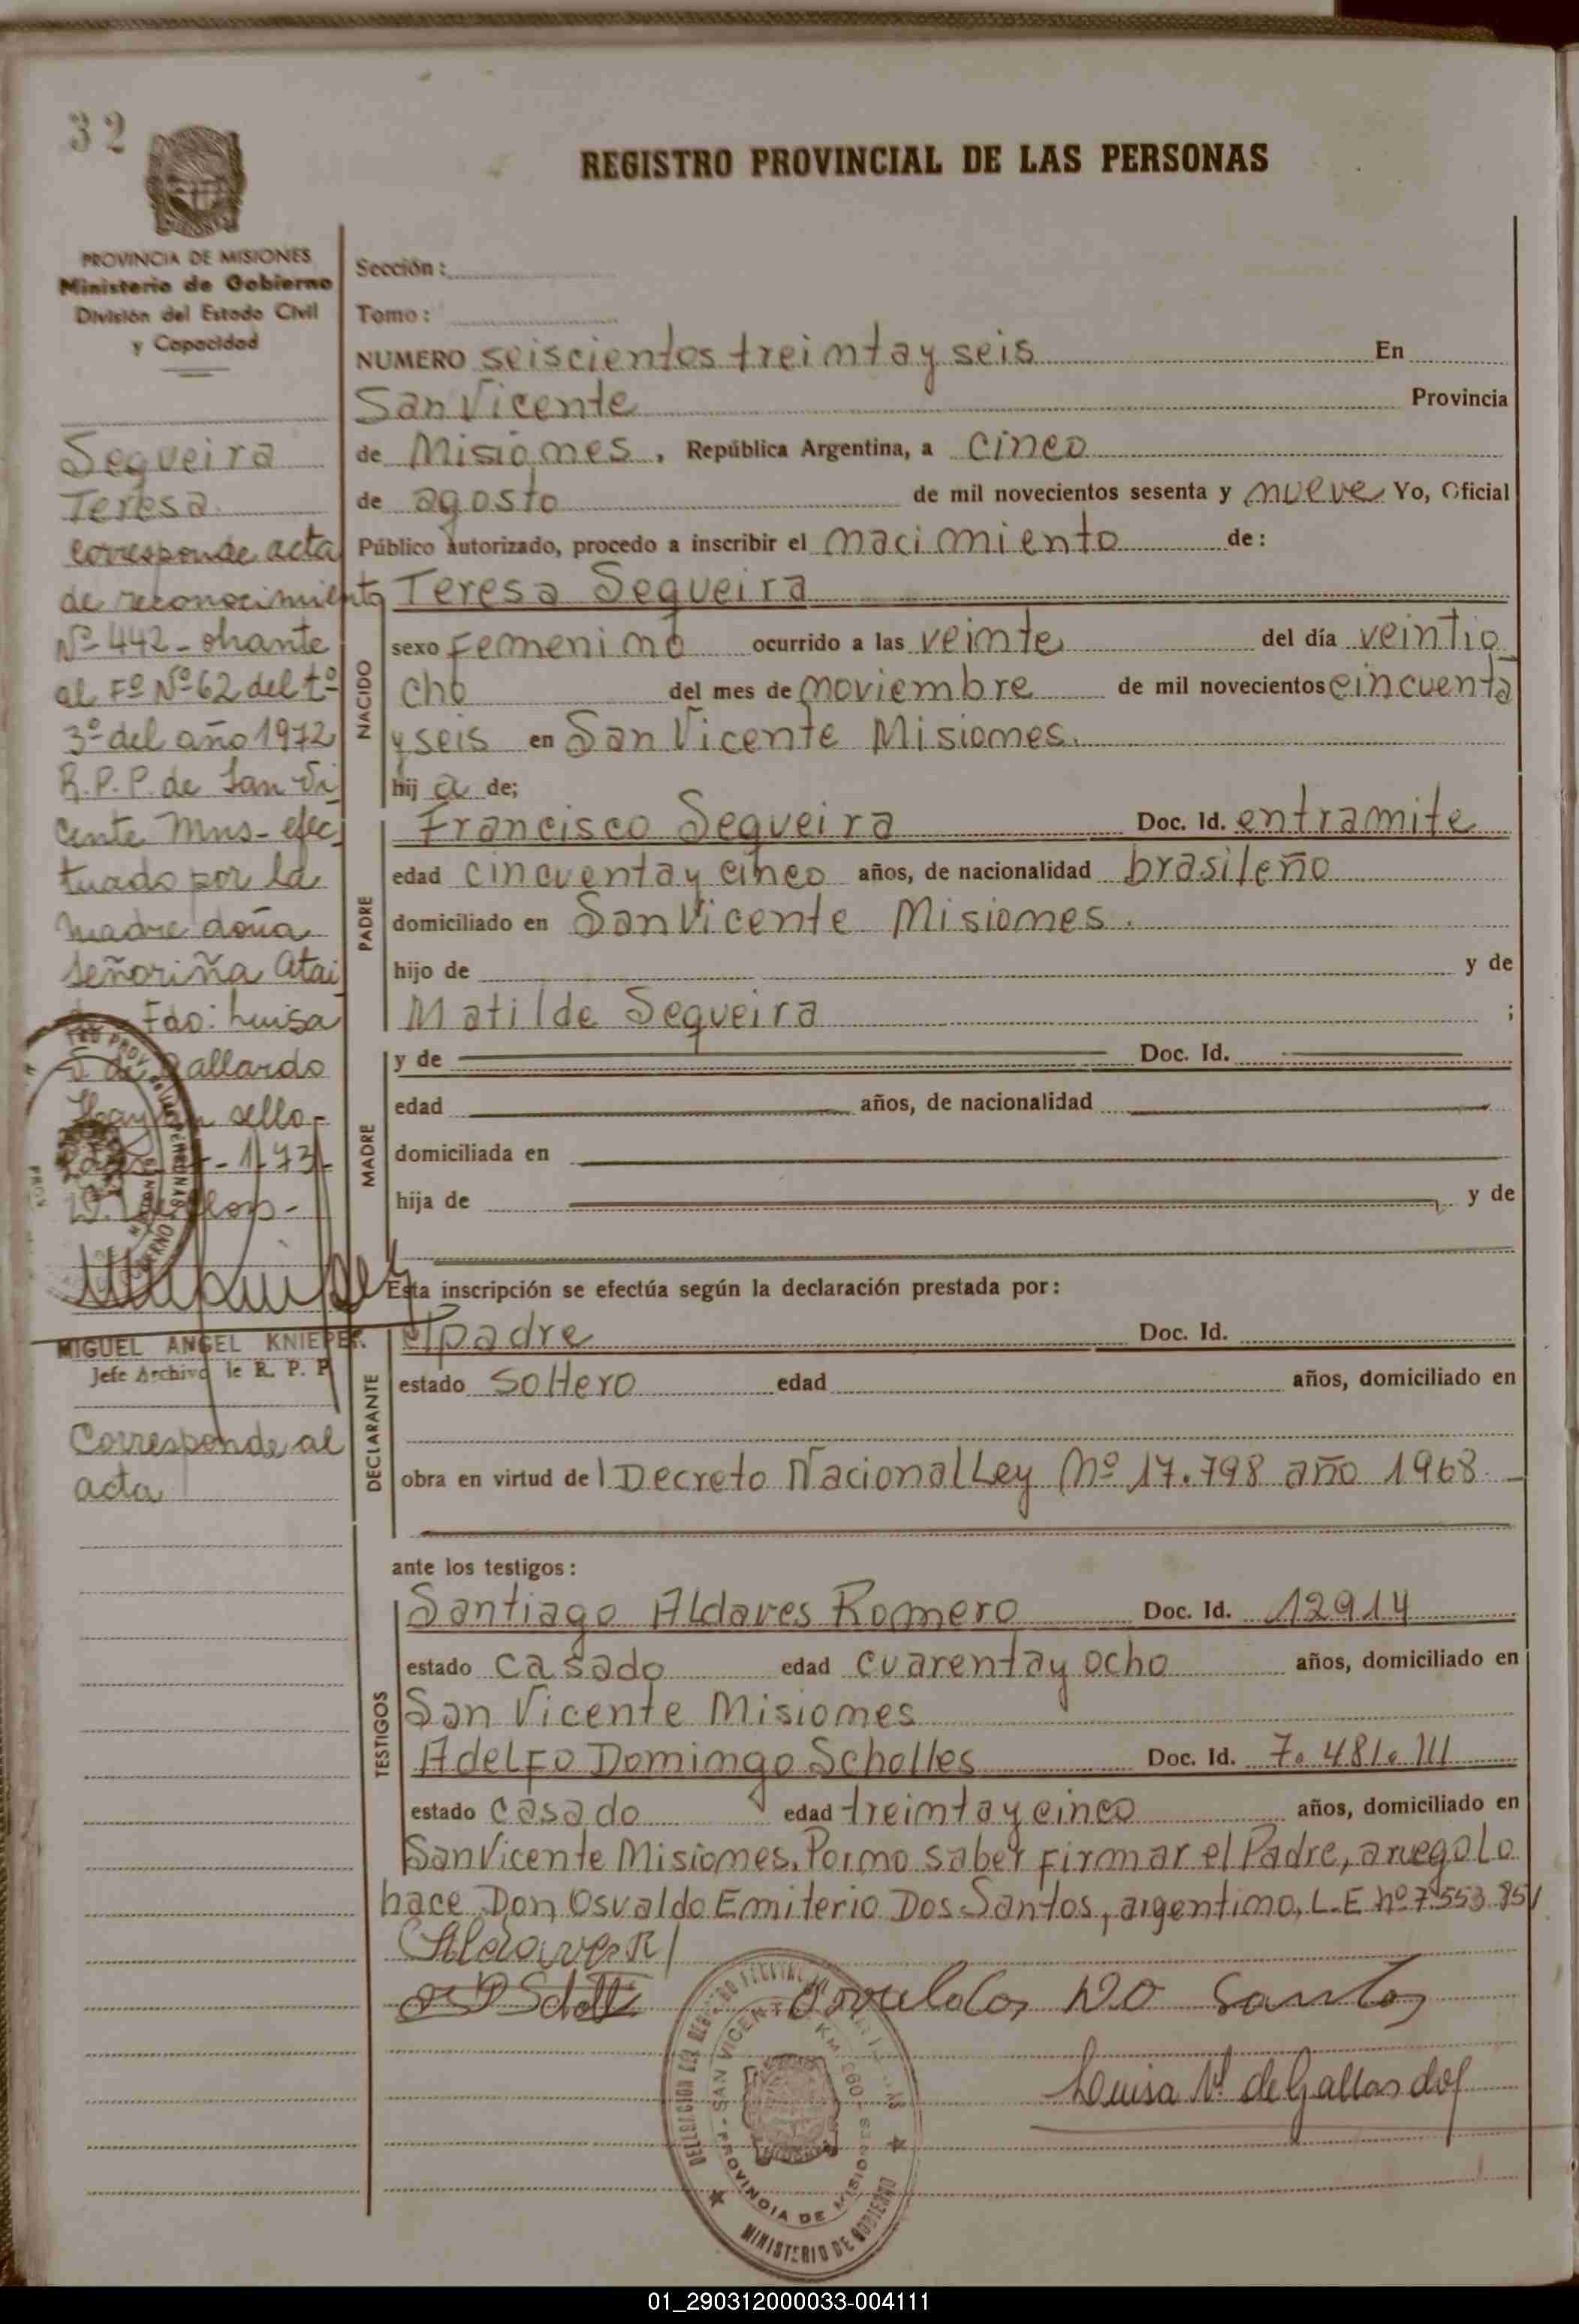 32
REGISTRO PROVINCIAL DE LAS PERSONAS
PROVINCIA DE MISIONES
Ministerio de Gobierno
División del Estado Civil
y Capacidad
Segueira
Teresa
corresponde acta
de reconocimiento
Nº 442 - obrante
al Fº Nº 62 del tº
3º del año 1972
R.P.P. de San Vi
cente Mns - efec
tuado por la
madre doña
señoriña Atai
Fdo: Luisa
de Gallardo
Hay un sello -
MIGUEL ANGEL KNIEPER
Jefe Archivo de R. P. P.
Corresponde al
acta
Sección:
Tomo:
NUMERO seiscientos treimta y seis En
San Vicente Provincia
de Misiones, República Argentina, a cinco
de agosto de mil novecientos sesenta y nueve Yo, Oficial
Público autorizado, procedo a inscribir el nacimiento de:
Teresa Segueira
NACIDO
sexo Femenino ocurrido a las veinte del día veintio
cho del mes de noviembre de mil novecientos cincuenta
y seis en San Vicente Misiones.
hij a de;
PADRE
Francisco Segueira Doc. Id. entramite
edad cincuenta y cinco años, de nacionalidad brasileño
domiciliado en San Vicente Misiones.
hijo de y de
Matilde Segueira ;
MADRE
y de Doc. Id.
edad años, de nacionalidad
domiciliada en
hija de y de
Esta inscripción se efectúa según la declaración prestada por:
DECLARANTE
el padre Doc. Id.
estado soltero edad años, domiciliado en
obra en virtud de l Decreto Nacional Ley Nº 17.798 año 1968
ante los testigos:
TESTIGOS
Santiago Aldaves Romero Doc. Id. 12914
estado casado edad cuarenta y ocho años, domiciliado en
San Vicente Misiones
Adelfo Domingo Scholles Doc. Id. 7.481.111
estado casado edad treimta y cinco años, domiciliado en
San Vicente Misiones. Por no saber firmar el Padre, a ruego lo
hace Don Osvaldo Emiterio Dos Santos, argentino, L.E nº 7.553.851
Osvaldo Do Santos
Luisa V. de Gallardo
SAN VICENTE
PROVINCIA DE MISIONES
MINISTERIO DE GOBIERNO
01_290312000033-004111